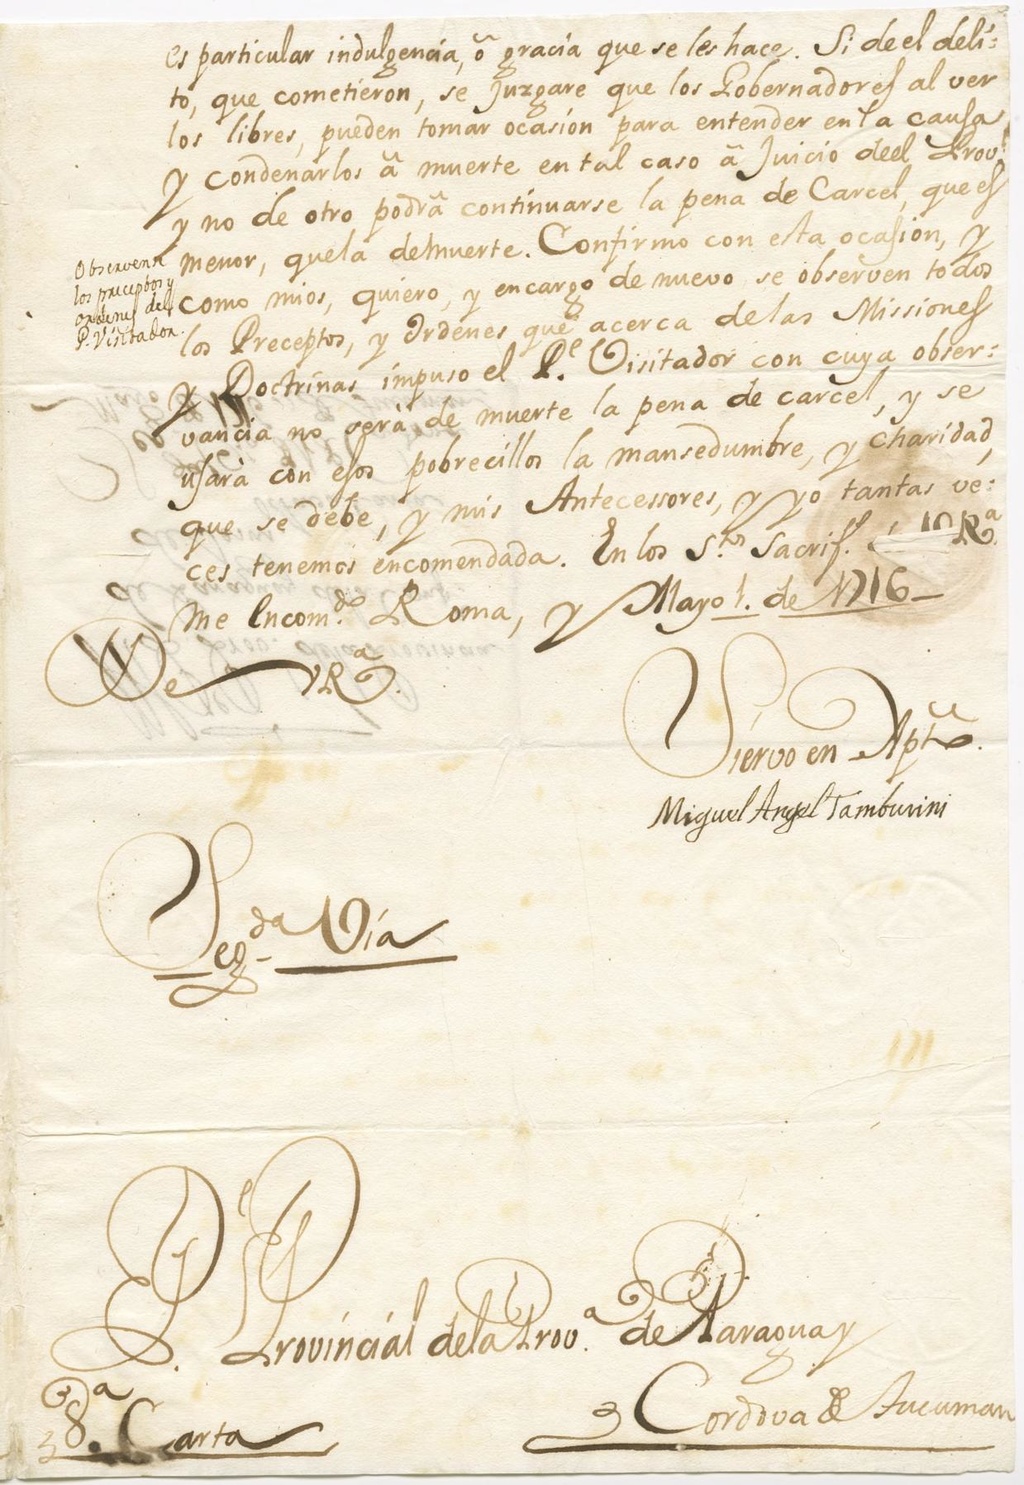 es particular indulgencia, ô gracia que se les hace. Si de el deli-
to, que cometieron, se Juzgare que los Gobernadores al ver
los libres, pueden tomar ocasion para entender en la causa
y condenarlos â muerte en tal caso â Juicio deel Prov.l
y no de otro podrâ continuarse la pena de Carcel, que es
menor, que la de muerte. Confirmo con esta ocasion, y
Observense
los preceptos y
ordenes del
P. Visitador.
como mios, quiero, y encargo de nuevo se observen todos
los Preceptos, y Ordenes que acerca de las Missiones
y Doctrinas impuso el P.e Visitador con cuya obser-
vancia no serà de muerte la pena de carcel, y se
usarà con esos pobrecillos la mansedumbre, y charidad,
que se debe, y mis Antecessores, y yo tantas ve-
ces tenemos encomendada. En los S.tos Sacrif. RA.
me Encom.do Roma, y Mayo 1. de 1716
De VRa.
Siervo en Xpto.
Miguel Angel Tamburini
Seg.da Via
P.e Provincial de la Prov.a de Paraguay
8.a Carta
Cordova de Tucuman